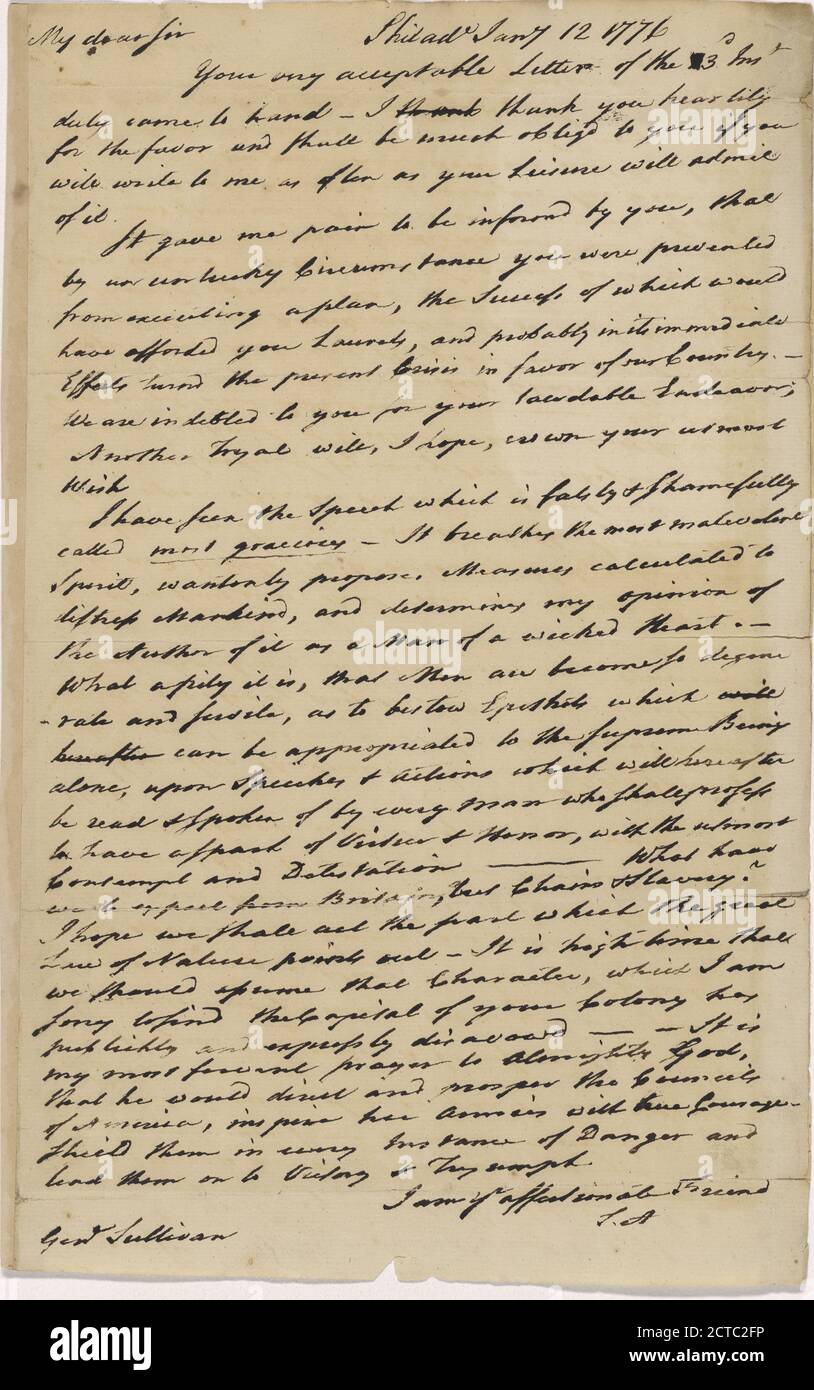 My dear Sir Philade Jany 12 1776
Your very acceptable Letter of the 3d Inst
duly came to hand - I thank you heartily
for the favor and shall be much obligd to you if you
will write to me as often as your Leisure will admit
of it.
It gave me pain to be informd by you, that
by an unlucky Circumstance you were prevented
from executing a plan, the Success of which would
have afforded you Laurels, and probably in its immediate
Effects turnd the present Crisis in favor of our Country. -
We are indebted to you for your laudable Endeavor;
Another Tryal will, I hope, crown your utmost
Wish
I have seen the Speech which is falsly & shamefully
called most gracious - It breathes the most malevolent
Spirit, wantonly proposes Measures calculated to
distress Mankind, and determines my opinion of
the Author of it as a Man of a wicked Heart. -
What a pity it is, that Men are become so degene
-rate and servile, as to bestow Epithets which will
hereafter can be appropriated to the Supreme Being
alone, upon Speeches & Actions which will hereafter
be read & spoken of by every Man who shall profess
to have a spark of Virtue & Honor, with the utmost
Contempt and Detestation — What have
we to expect from Britain, but Chains & Slavery?
I hope we shall act the part which the great
Law of Nature points out - It is high time that
we should assume that Character, which I am
sorry to find the Capital of your Colony has
publickly and expressly disavowd — - It is
my most fervent prayer to Almighty God,
that he would direct and prosper the Councils
of America, inspire her Armies with true Courage -
shield them in every Instance of Danger and
lead them on to Victory & Tryumph.
I am yr affectionate Friend
S. A
Genl Sullivan
alamy
alamy
alamy
alamy
Image ID: 2CTC2FP
www.alamy.com